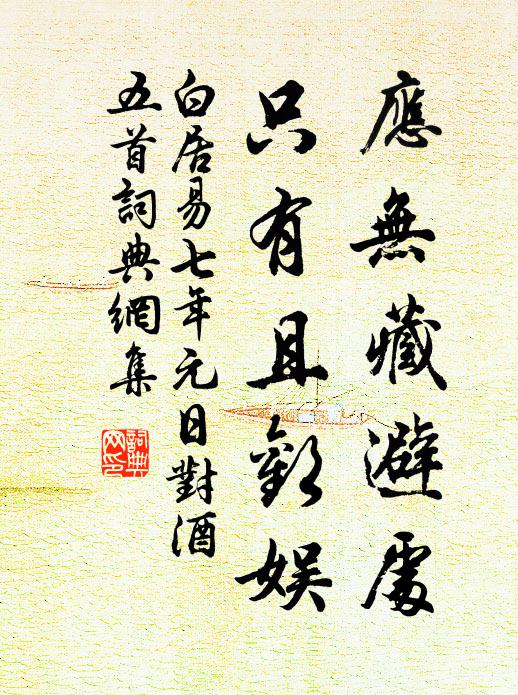 應無藏避處
只有且歡娛
白居易七年元日對酒
五首詞典網集
詞典
网印